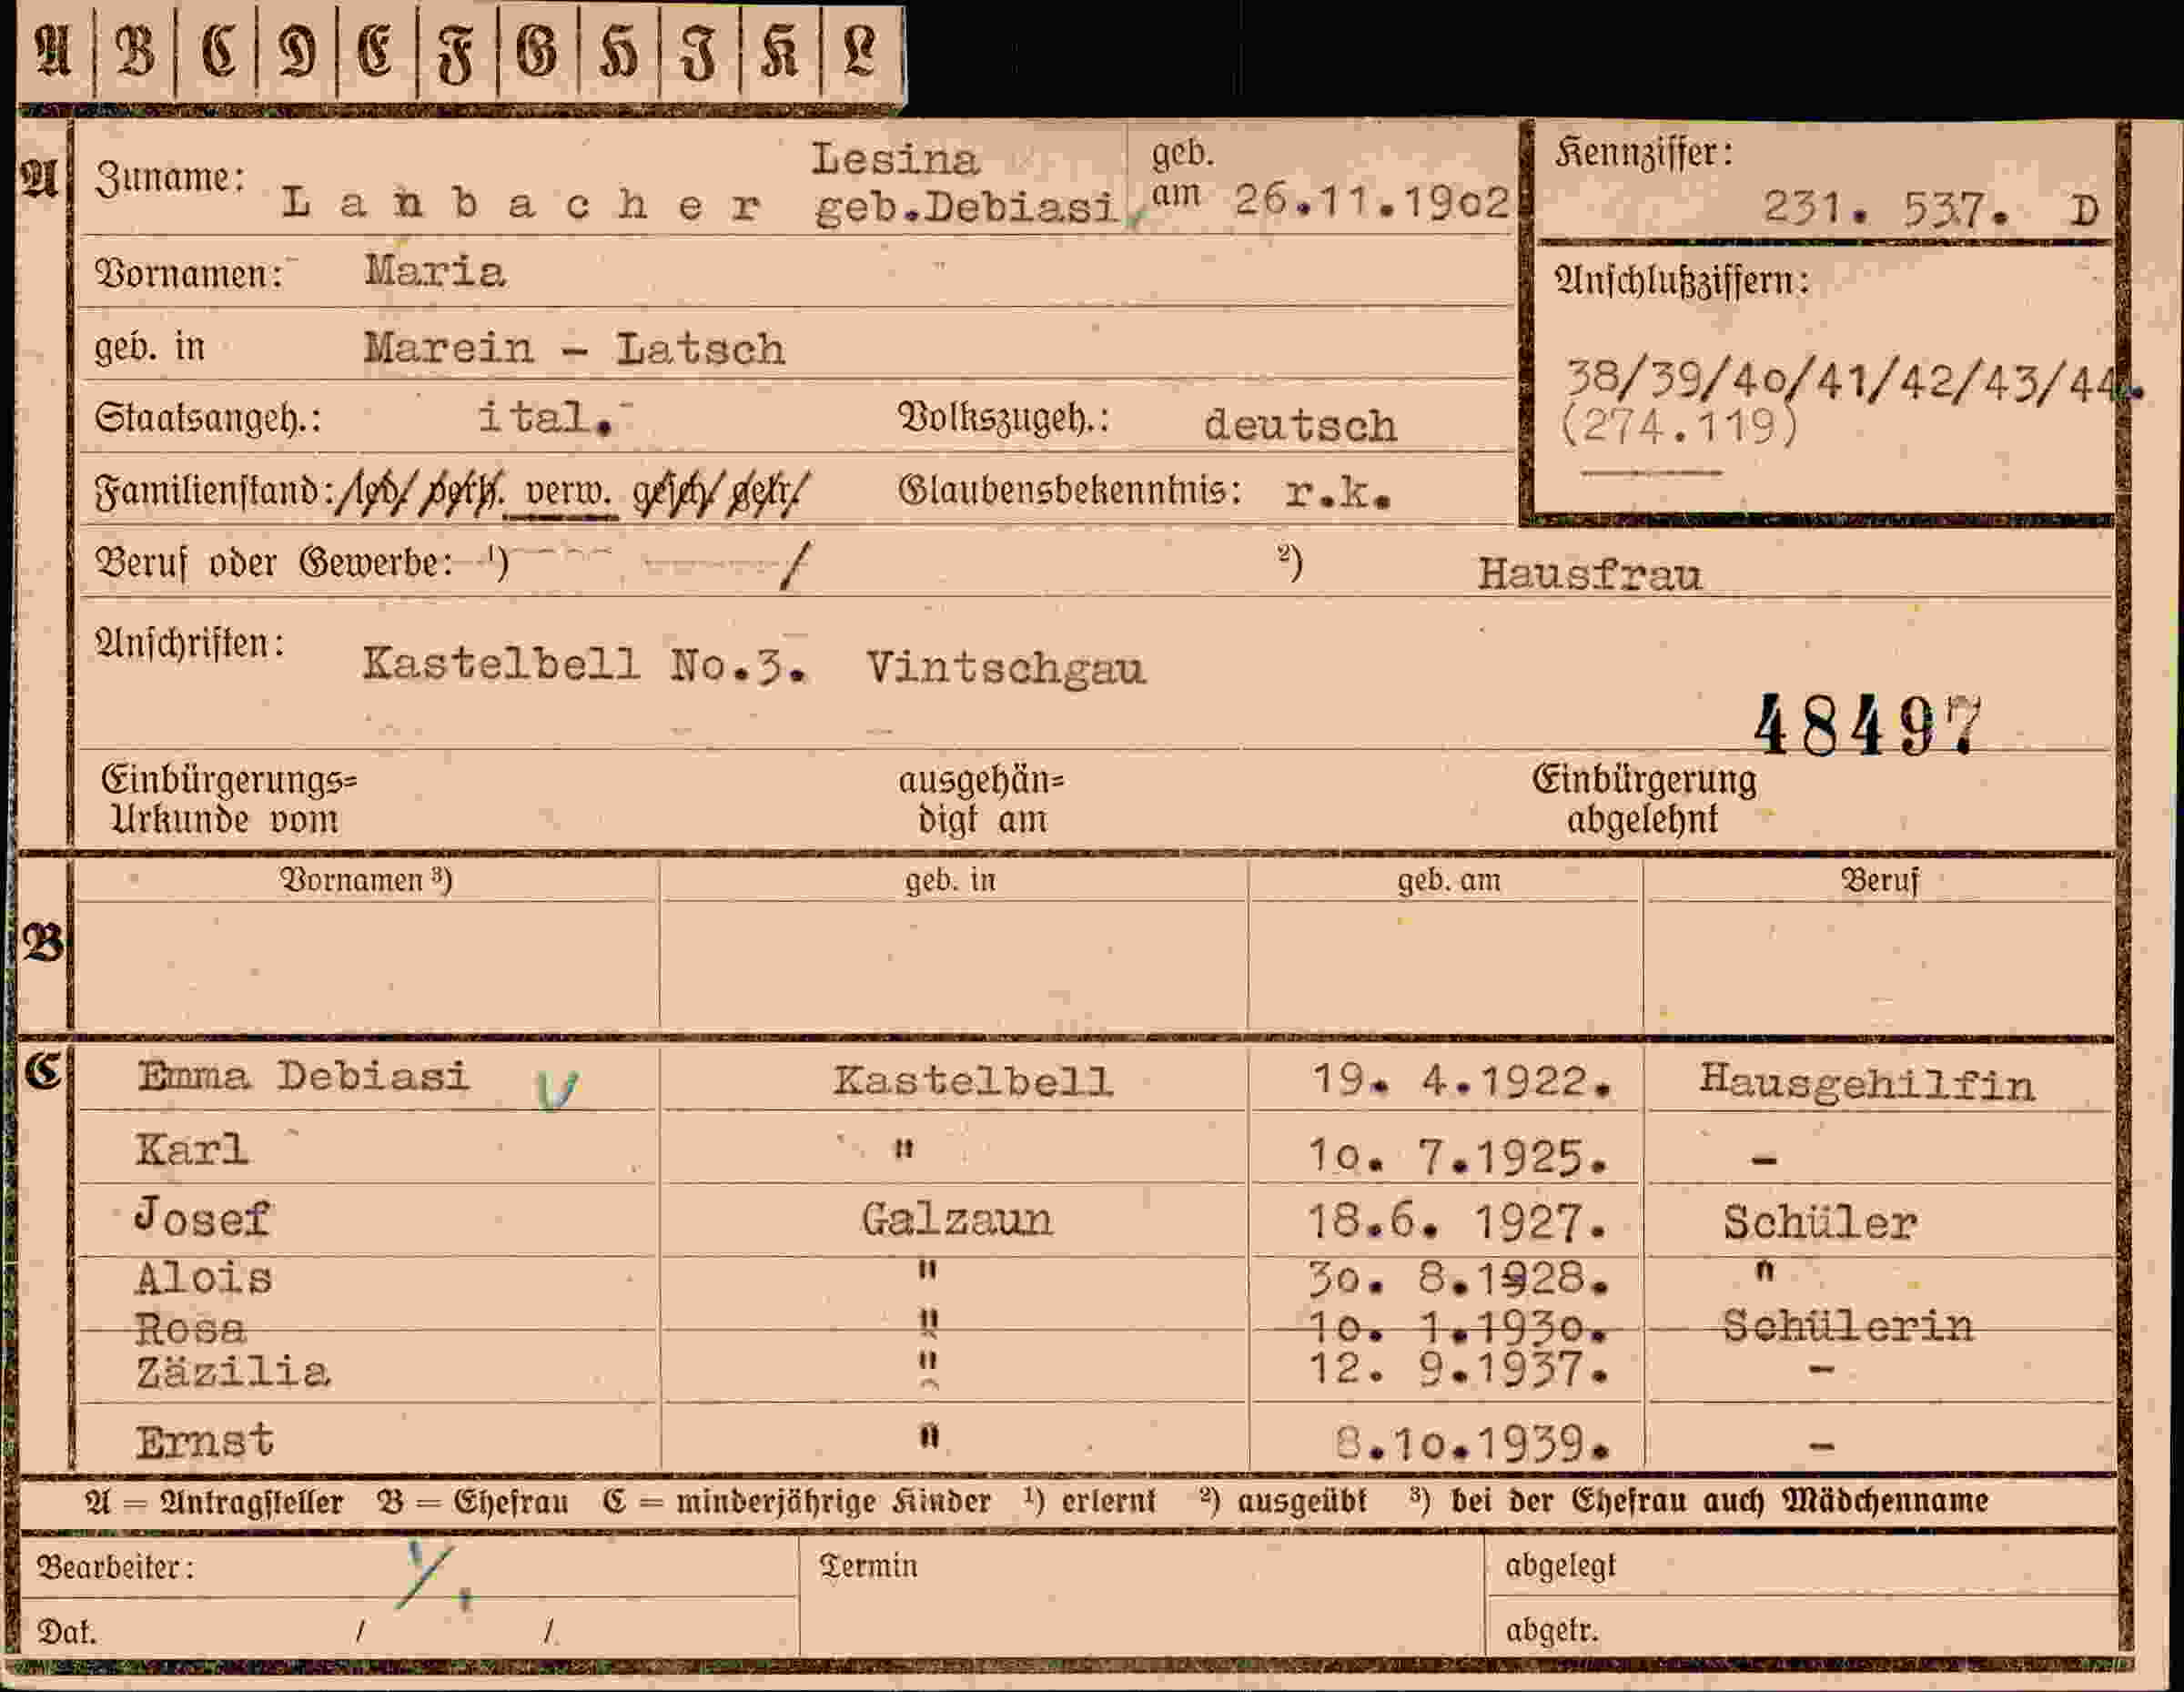 A B C D E F G H I K L
A Zuname: Lanbacher Lesina geb.Debiasi, geb. am 26.11.1902
Kennziffer: 231. 537. D
Vornamen: Maria
Anschlußziffern:
geb. in Marein - Latsch
38/39/40/41/42/43/44.
(274.119)
Staatsangeh.: ital. Volkszugeh.: deutsch
Familienstand: led. verh. verw. gesch. getr. Glaubensbekenntnis: r.k.
Beruf oder Gewerbe: ¹) / ²) Hausfrau
Anschriften: Kastelbell No.3. Vintschgau
48497
Einbürgerungs= Urkunde vom ausgehän= digt am Einbürgerung abgelehnt
Vornamen ³) geb. in geb. am Beruf
B
C Emma Debiasi V Kastelbell 19. 4.1922. Hausgehilfin
Karl " 10. 7.1925. -
Josef Galzaun 18.6. 1927. Schüler
Alois " 30. 8.1928. "
Rosa " 10. 1.1930. Schülerin
Zäzilia " 12. 9.1937. -
Ernst " 8.10.1939. -
A = Antragsteller B = Ehefrau C = minderjährige Kinder ¹) erlernt ²) ausgeübt ³) bei der Ehefrau auch Mädchenname
Bearbeiter: Termin abgelegt
Dat. / / abgetr.